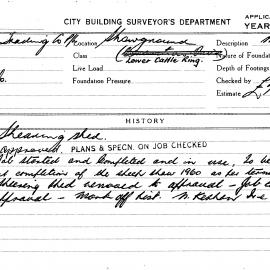 CITY BUILDING SURVEYOR'S DEPARTMENT
APPLIC
YEAR
Trading Co Location Showground Description
Class
Nature of Foundation
Lower Cattle Ring.
Live Load
Depth of Footings
Foundation Pressure
Checked by
Estimate £
HISTORY
Shearing shed.
Approved. PLANS & SPECN. ON JOB CHECKED
Job started and completed and in use. To be
completion of the sheep show 1960 as per terms
shearing shed removed to approval – Job
approval – Mark off list.